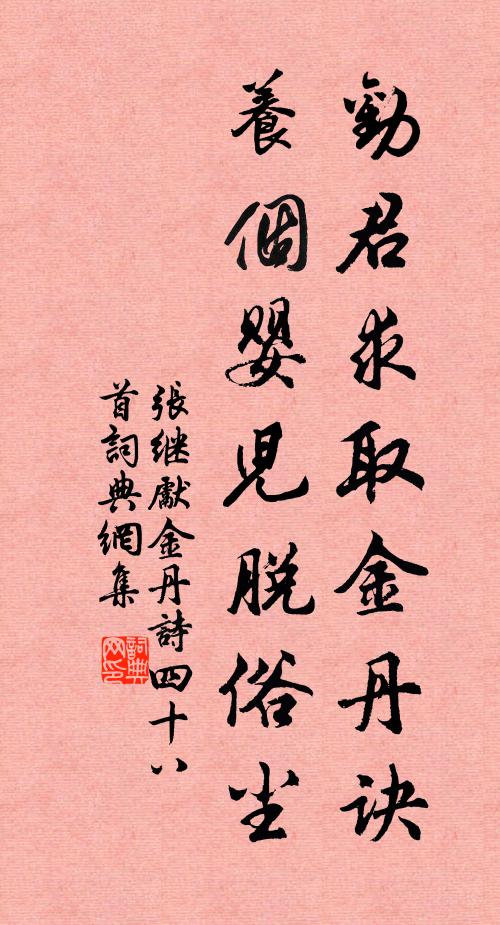 勸君求取金丹訣
養個嬰兒脫俗尘
張继獻金丹詩四十八
首詞典網集
詞典
网印